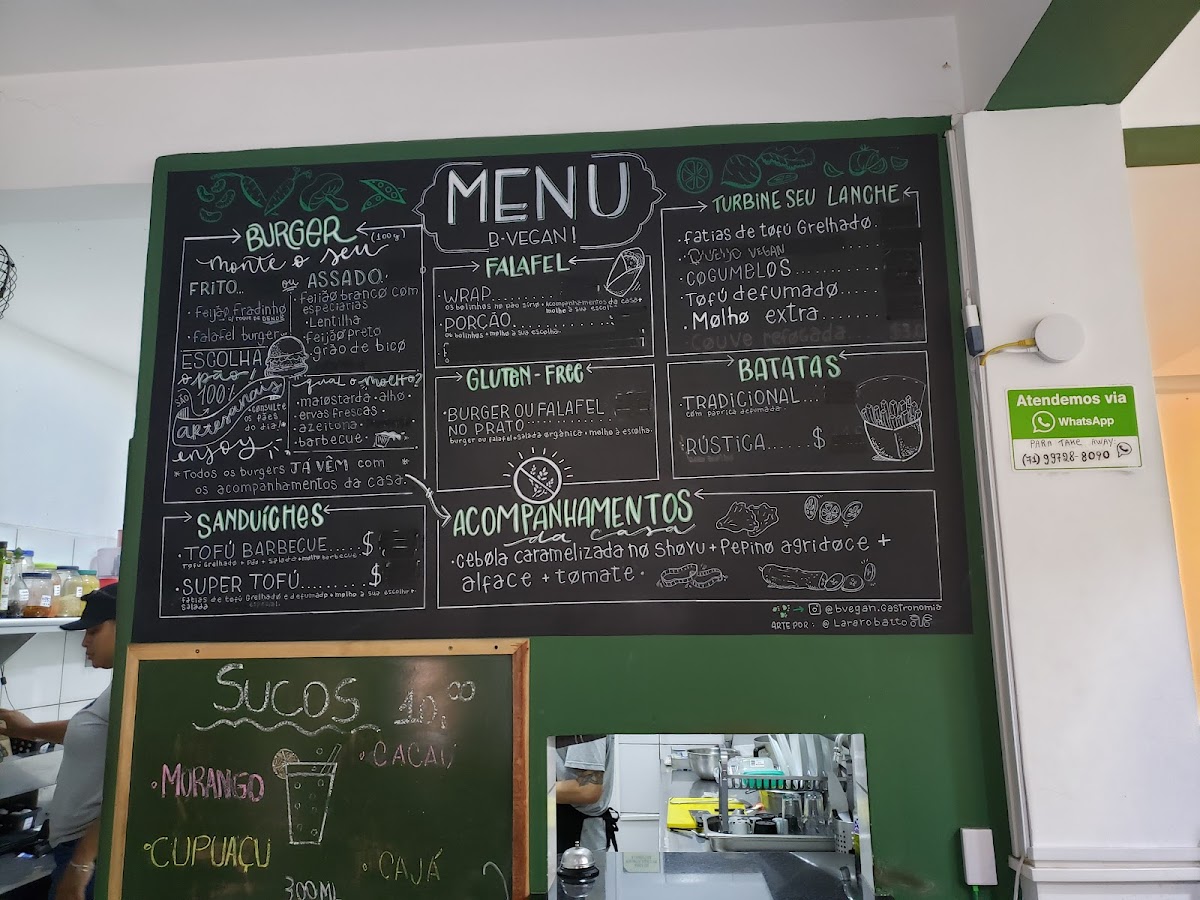 MENU
B·VEGAN!
BURGER (100g)
monte o seu
FRITO...
· Feijão Fradinho
c/ toque de DENDÊ
· falafel burger
ou ASSADO.
· feijão branco com
especiarias
· Lentilha
· feijão preto
· grão de bico
ESCOLHA
o pão!
são 100%
artesanais
*consulte
os pães
do dia!*
enjoy
qual o molho?
· maiostarda · alho ·
· ervas frescas ·
· azeitona ·
· barbecue ·
*Todos os burgers JÁ VÊM com *
os acompanhamentos da casa.
SANDUÍCHES
· TOFÚ BARBECUE..... $
TOFÚ Grelhado + Pão + Salada + molho barbecue
· SUPER TOFÚ......... $
fatias de tofú Grelhado e defumado + molho à sua escolha +
salada
FALAFEL
· WRAP
os bolinhos no pão sírio + Acompanhamentos da casa +
molho à sua escolha
· PORÇÃO
os bolinhos + molho à sua escolha
GLUTEN-FREE
· BURGER OU FALAFEL
NO PRATO
burger ou falafel + salada orgânica + molho à escolha.
TURBINE SEU LANCHE
· fatias de tofú Grelhado.
· Queijo VEGAN
· COGUMELOS
· Tofú defumado
· Molho extra
· Couve refogada
BATATAS
· TRADICIONAL ...
com páprica defumada
· RÚSTICA...... $
ACOMPANHAMENTOS
da casa
· cebola caramelizada no shoyu + Pepino agridoce +
alface + tomate ·
@bvegan.gastronomia
ARTE POR: @Lararobatto
Atendemos via
WhatsApp
PARA TAKE AWAY:
(71) 99728-8090
SUCOS 10,00
· CACAU
· MORANGO
· CUPUAÇU
· CAJÁ
300ML